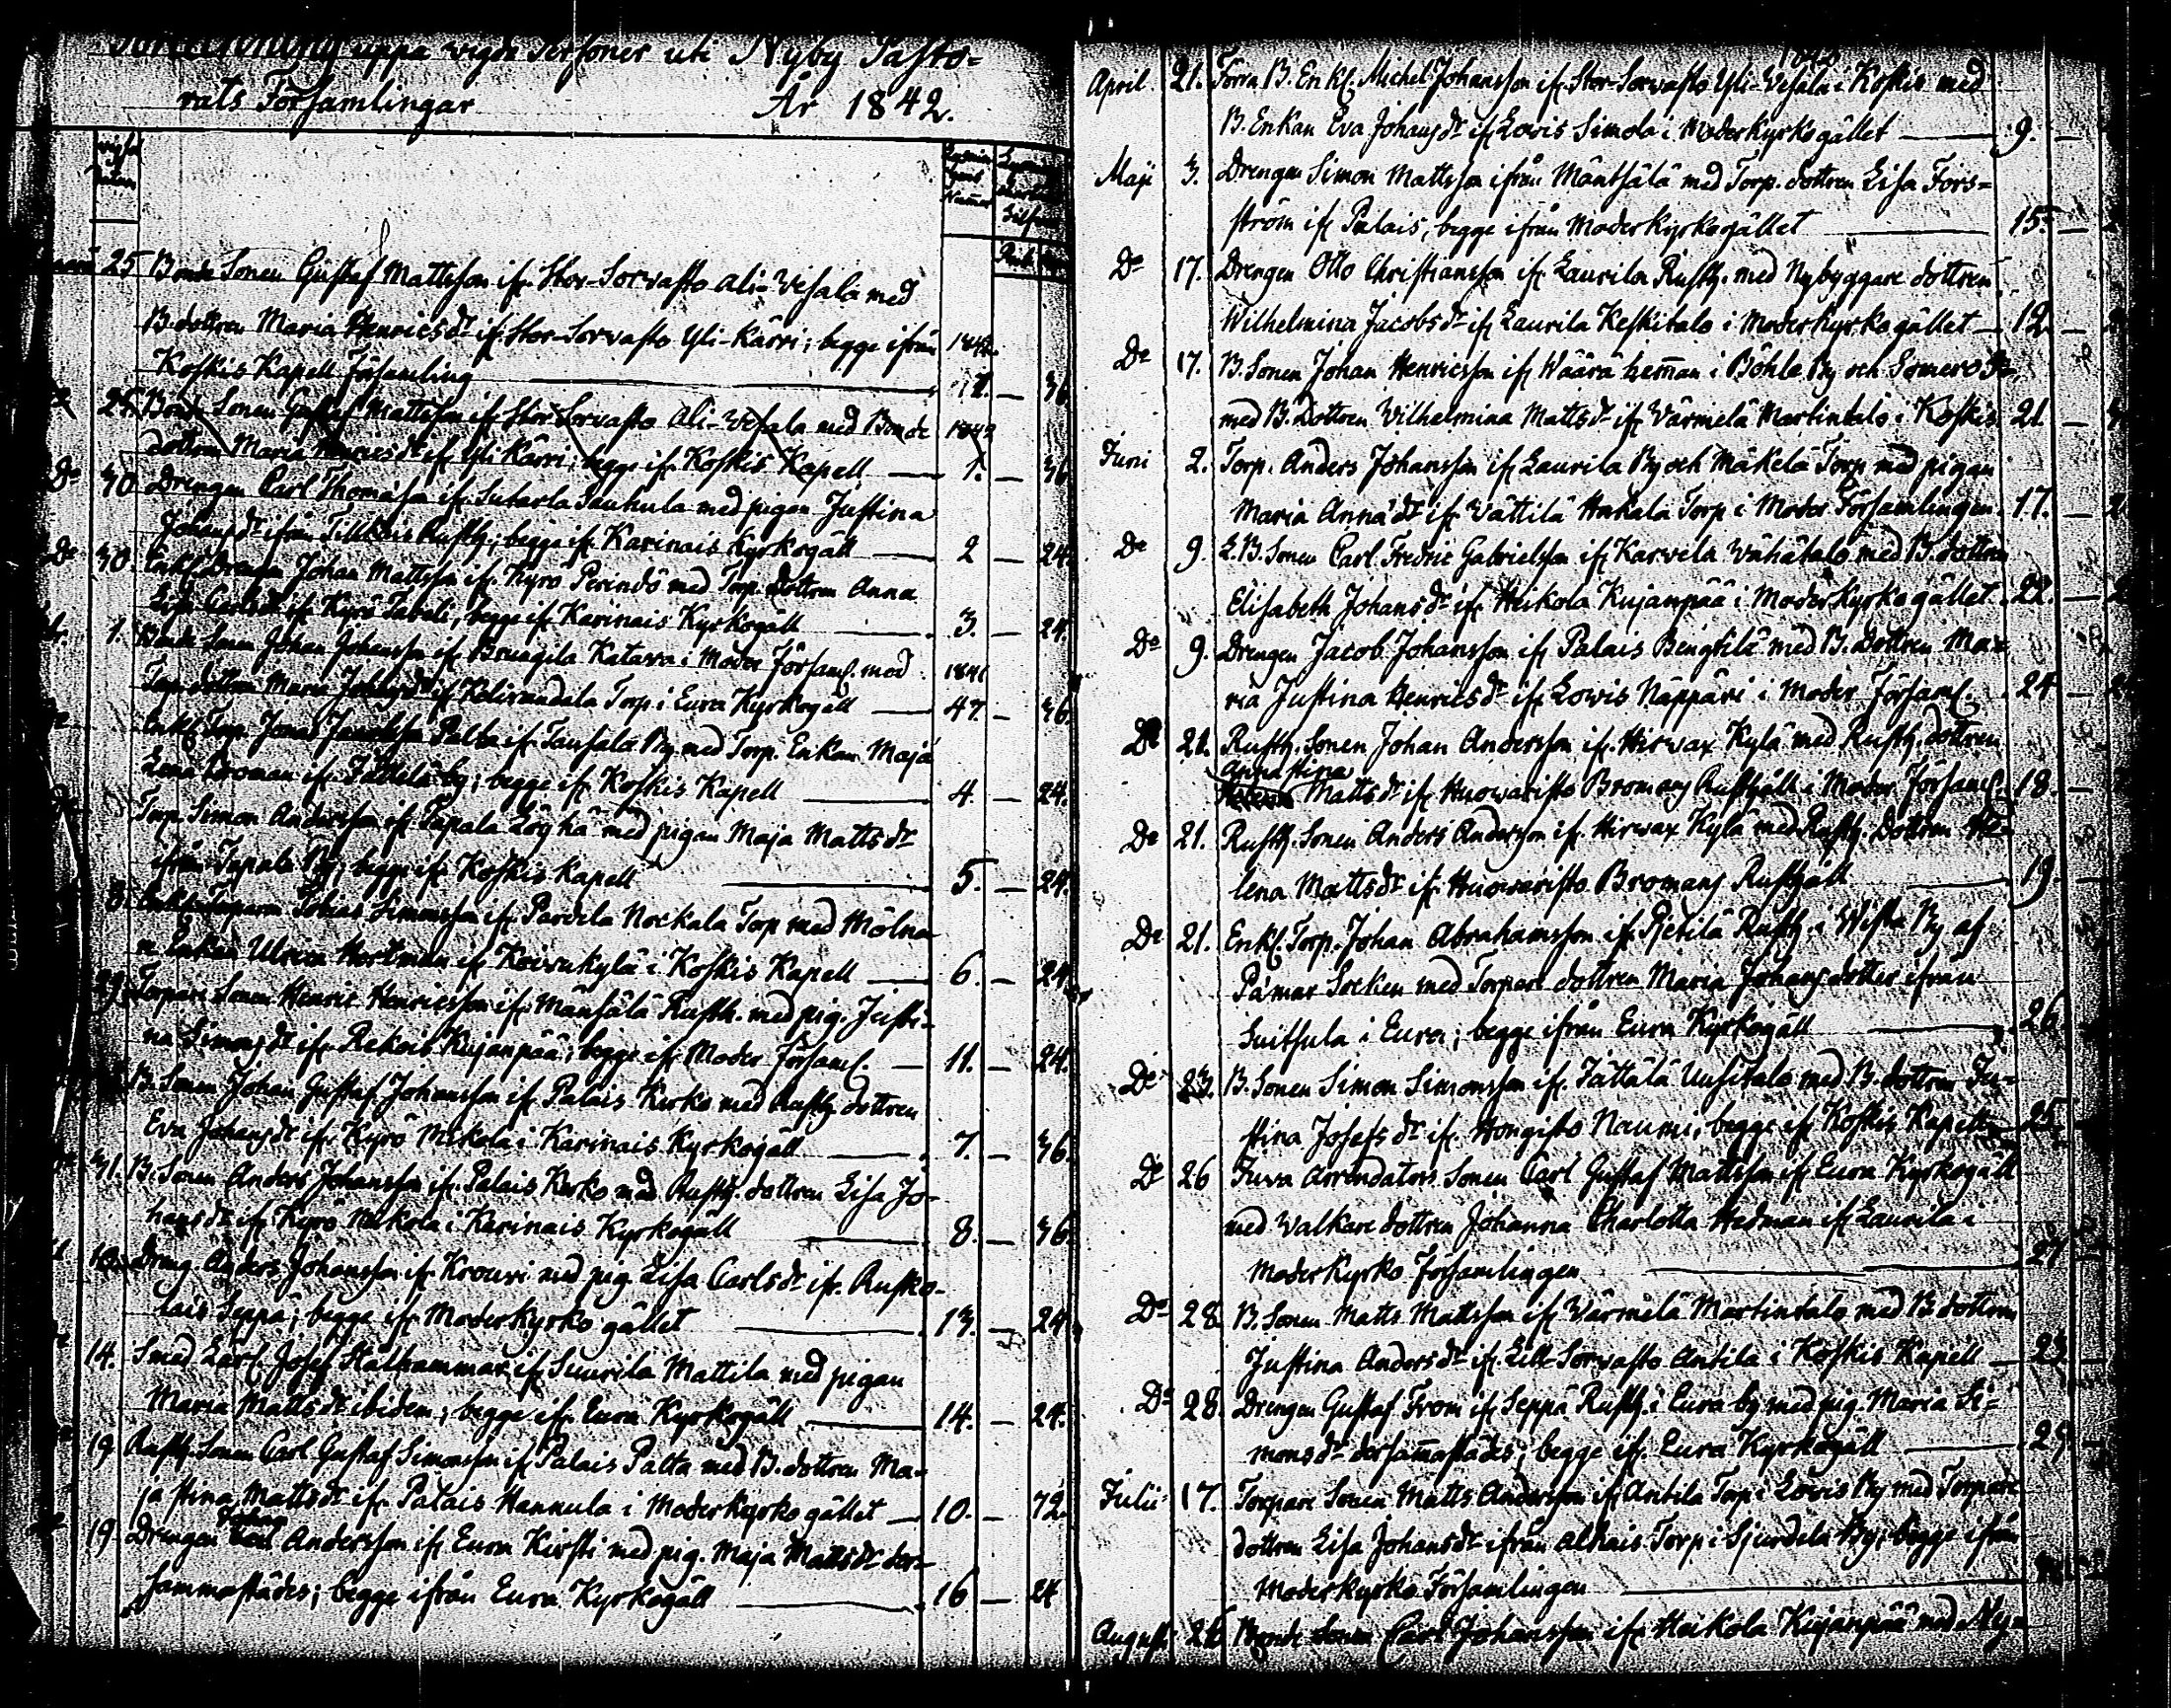 Förteckning uppå wigda Personer uti Nyby Pasto=
rats Församlingar År 1842.
25 Bonde Sonen Gustaf Mattsson ifr. Stor-Sorvasto Ali-Vesala med
B. dottren Maria Henricsdr ifr. Stor-Sorvasto Yli-Kärri; begge ifrån 1842
Koskis Kapell Församling 12. — 36
25 Bonde Sonen Gustaf Mattsson ifr Stor Sorvasto Ali-Vesala med Bonde 1842
dottren Maria Henricsdr ifr Yli Kärri; begge ifr. Koskis Kapell 1. — 36
Do 30 Drengen Carl Thomasson ifr. Sutarla Tauhula med pigan Justina
Johansdr ifrån Rusth.; begge ifr Karinais Kyrkogäll 2 — 24.
Do 30. Enkl. Drengen Johan Mattsson ifr. Kyrö Perindö med Torp. dottren Anna
Lisa Carlsdr ifr Kyrö; begge ifr Karinais Kyrkogäll 3. — 24.
1. Bonde Sonen Johan Johansson ifr Brungila Katava i Moder Församl. med 1841
Torp. dottren Maria Johansdr ifr Torp i Eura Kyrkogäll 47. — 36.
Enkl. Torp. Jonas Palta ifr Tausala By med Torp. Enkan Maja
Lena Broman ifr by; begge ifr Koskis Kapell 4. — 24.
Torp. Simon Andersson ifr Tapala med pigan Maja Mattsdr
ifrån Tapala By; begge ifr Koskis Kapell 5. — 24.
8. Enkl. Torparen Tobias Simonsson ifr Parvila Nockala Torp med Mölna-
re Enkan Ulrica Hortman ifr Koivukylä i Koskis Kapell 6. — 24.
29. Torpare Sonen Henric Henricsson ifr. Mänsälä Rusth. med pig. Justi-
na Simonsdr ifr. Rekois Kujanpää; begge ifr Moder Församl. 11. — 24.
B. Sonen Johan Gustaf Johansson ifr Palais Kerko med Rusth. dottren
Eva Johansdr ifr. Kyrö Mikola i Karinais Kyrkogäll 7. — 36.
31. B. Sonen Anders Johansson ifr. Palais Kerko med Rusth. dottren Lisa Jo-
hansdr ifr Kyrö Mikola i Karinais Kyrkogäll 8. — 36
10. Dreng Anders Johansson ifr Krouvi med pig Lisa Carlsdr ifr. Rusko-
lais Seppä; begge ifr Moderkyrko gället 13. — 24
14. Smed Lärl. Josef Stålhammar ifr Suurila Mattila med pigan
Maria Mattsdr ibidem; begge ifr. Eura Kyrkogäll 14. — 24.
19. Rusth. Sonen Carl Gustaf Simonsson ifr Palais Palta med B. dottren Ma-
ja Stina Mattsdr ifr Palais Hannula i Moderkyrko gället 10. — 72.
19 Drengen Johan Andersson ifr Eura Kirsti med pig. Maja Mattsdr der-
sammastädes; begge ifrån Eura Kyrkogäll 16 — 24
1842
April 21. Förra B. Enkl. Michel Johansson ifr Stor-Sorvasto Yli-Vesala i Koskis med
B. Enkan Eva Johansdr ifr Lovis Simola i Moderkyrko gället 9. —
Maji 3. Drengen Simon Mattsson ifrån Mäntsälä med Torp. dottren Lisa Fors=
ström ifr Palais, begge ifrån Moderkyrkogället 15. —
Do 17. Drengen Otto Christiansson ifr Laurila Rusth. med Nybyggare dottren
Wilhelmina Jacobsdr ifr Laurila Keskitalo i Moderkyrko gället 12 —
Do 17. B. Sonen Johan Henricsson ifr Wäärä heman i Böhle By och Somero Sn.
med B. Dottren Wilhelmina Mattsdr ifr Värmelä Martintalo i Koskis 21 —
Juni 2. Torp. Anders Johansson ifr Laurila By och Mäkelä Torp med pigan
Maria Annädr ifr Vättilä Hakala Torp i Moder Församlingen 17. —
Do 9. L. B. Sonen Carl Fredric Gabrielsson ifr Karvela Vähätalo med B. dottren
Elisabeth Johansdr ifr Heikola Kujanpää i Moderkyrko gället 22. —
Do 9. Drengen Jacob Johansson ifr Palais Bengtilä med B. Dottren Ma=
ria Justina Henricsdr ifr Lovis Näppäri i Moder Församl. 24 —
Do 21. Rusth. Sonen Johan Andersson ifr. Hirvax Kylä med Rusth. dottren
Anna Stina Mattsdr ifr Huovaristo Bromans Rusthåll i Moder Församl. 18. —
Do 21. Rusth. Sonen Anders Andersson ifr. Hirvax Kylä med Rusth. Dottren He-
lena Mattsdr ifr. Huovaristo Bromans Rusthåll 19
Do 21. Enkl. Torp. Johan Abrahamsson ifr Pjetilä Rusth. i Wista By af
Pämar Socken med Torpare dottren Maria Johans dotter ifrån
Suitsula i Eura; begge ifrån Eura Kyrkogäll 26
Do 23. B. Sonen Simon Simonsson ifr. Tättälä Uusitalo med B. dottren Ju=
stina Josefsdr ifr. Hongisto Naumi, begge ifr Koskis Kapell 25
Do 26 Fuva Arrendators Sonen Carl Gustaf Mattsson ifr Eura Kyrkogäll
med Walkare dottren Johanna Charlotta Hedman ifr Laurila i
Moderkyrko Församlingen 27
Do 28. B. Sonen Matts Mattsson ifr Värmelä Martintalo med B. dottren
Justina Andersdr ifr. Lill-Sorvasto Antila i Koskis Kapell 23
Do 28. Drengen Gustaf From ifr Seppä Rusth. i Eura by med pig. Maria Si=
monsdr dersammastädes; begge ifr. Eura Kyrkogäll 29
Julii 17. Torpare Sonen Matts Andersson ifr Antila Torp i Lovis By med Torpare
dottren Lisa Johansdr ifrån Alhais Torp i Sjurdela By; begge ifrån
Moderkyrko Församlingen
August 28 Bonde Sonen Carl Johansson ifr Heikola Kujanpää med Ny=